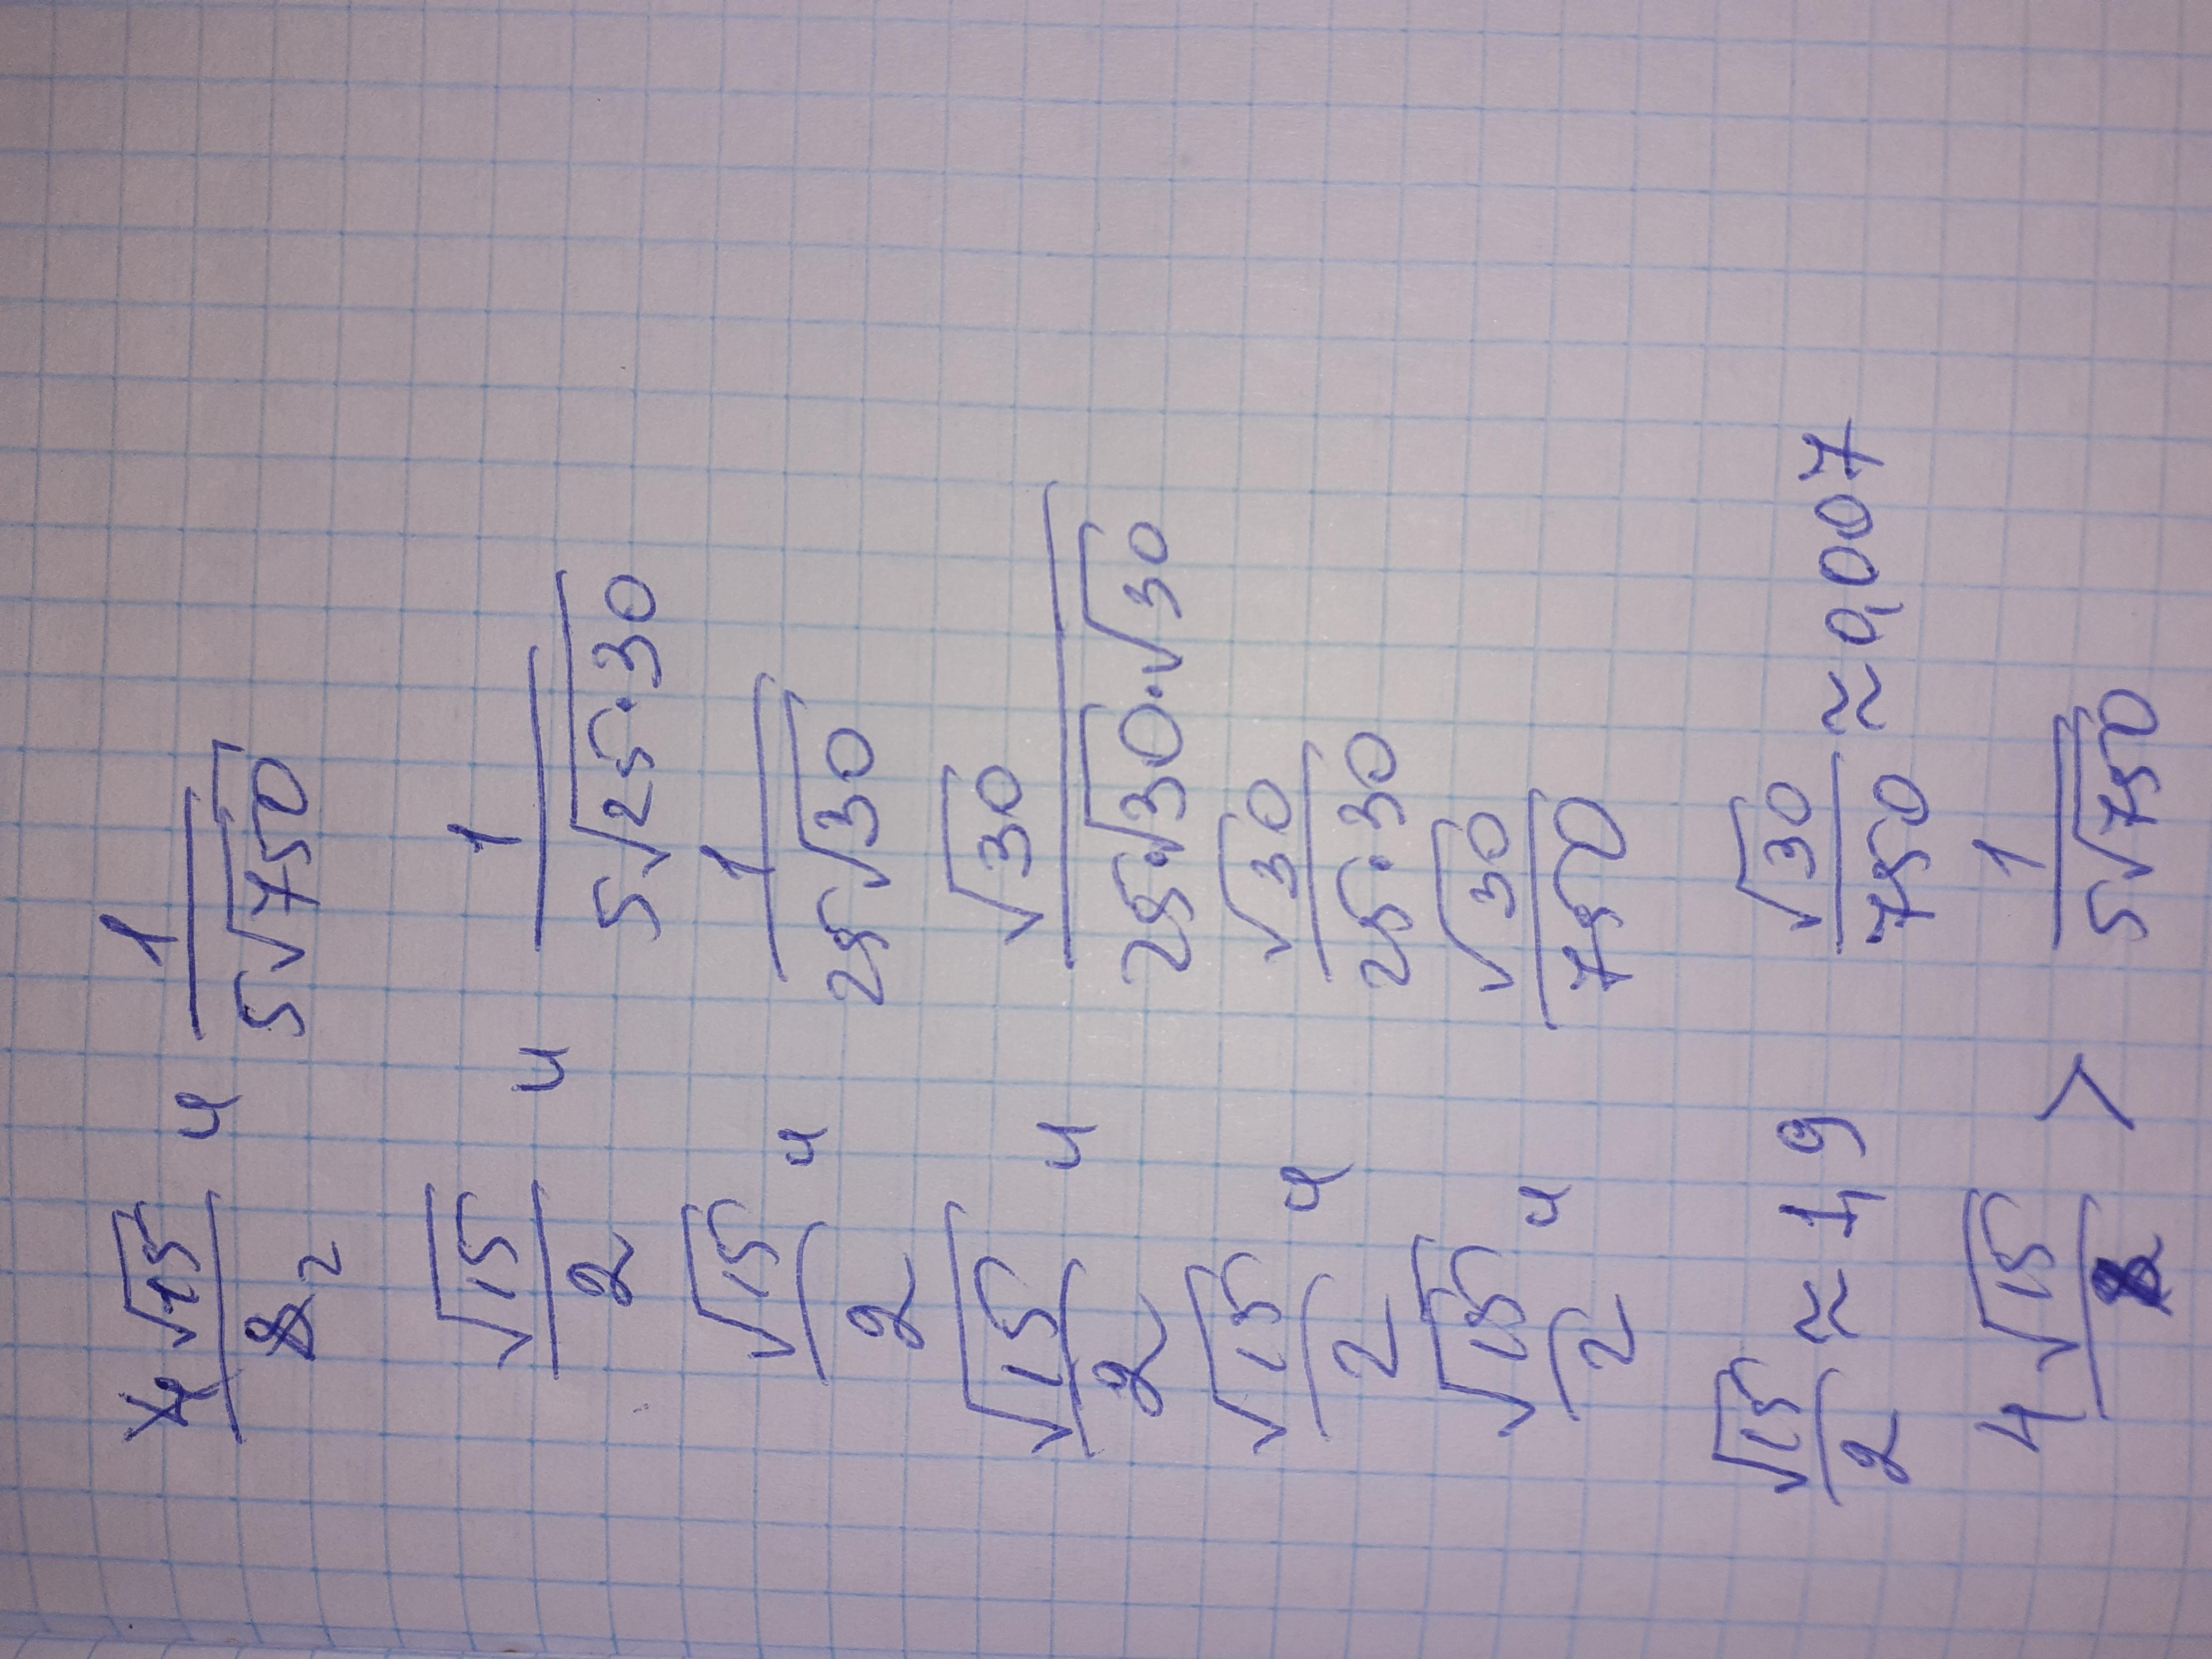 4√15/8 2 и 1/5√750
√15/2 и 1/5√25·30
√15/2 и 1/25√30
√15/2 и √30/25·√30·√30
√15/2 и √30/25·30
√15/2 и √30/750
√15/2 ≈ 1,9 √30/750 ≈ 0,007
4√15/8 > 1/5√750